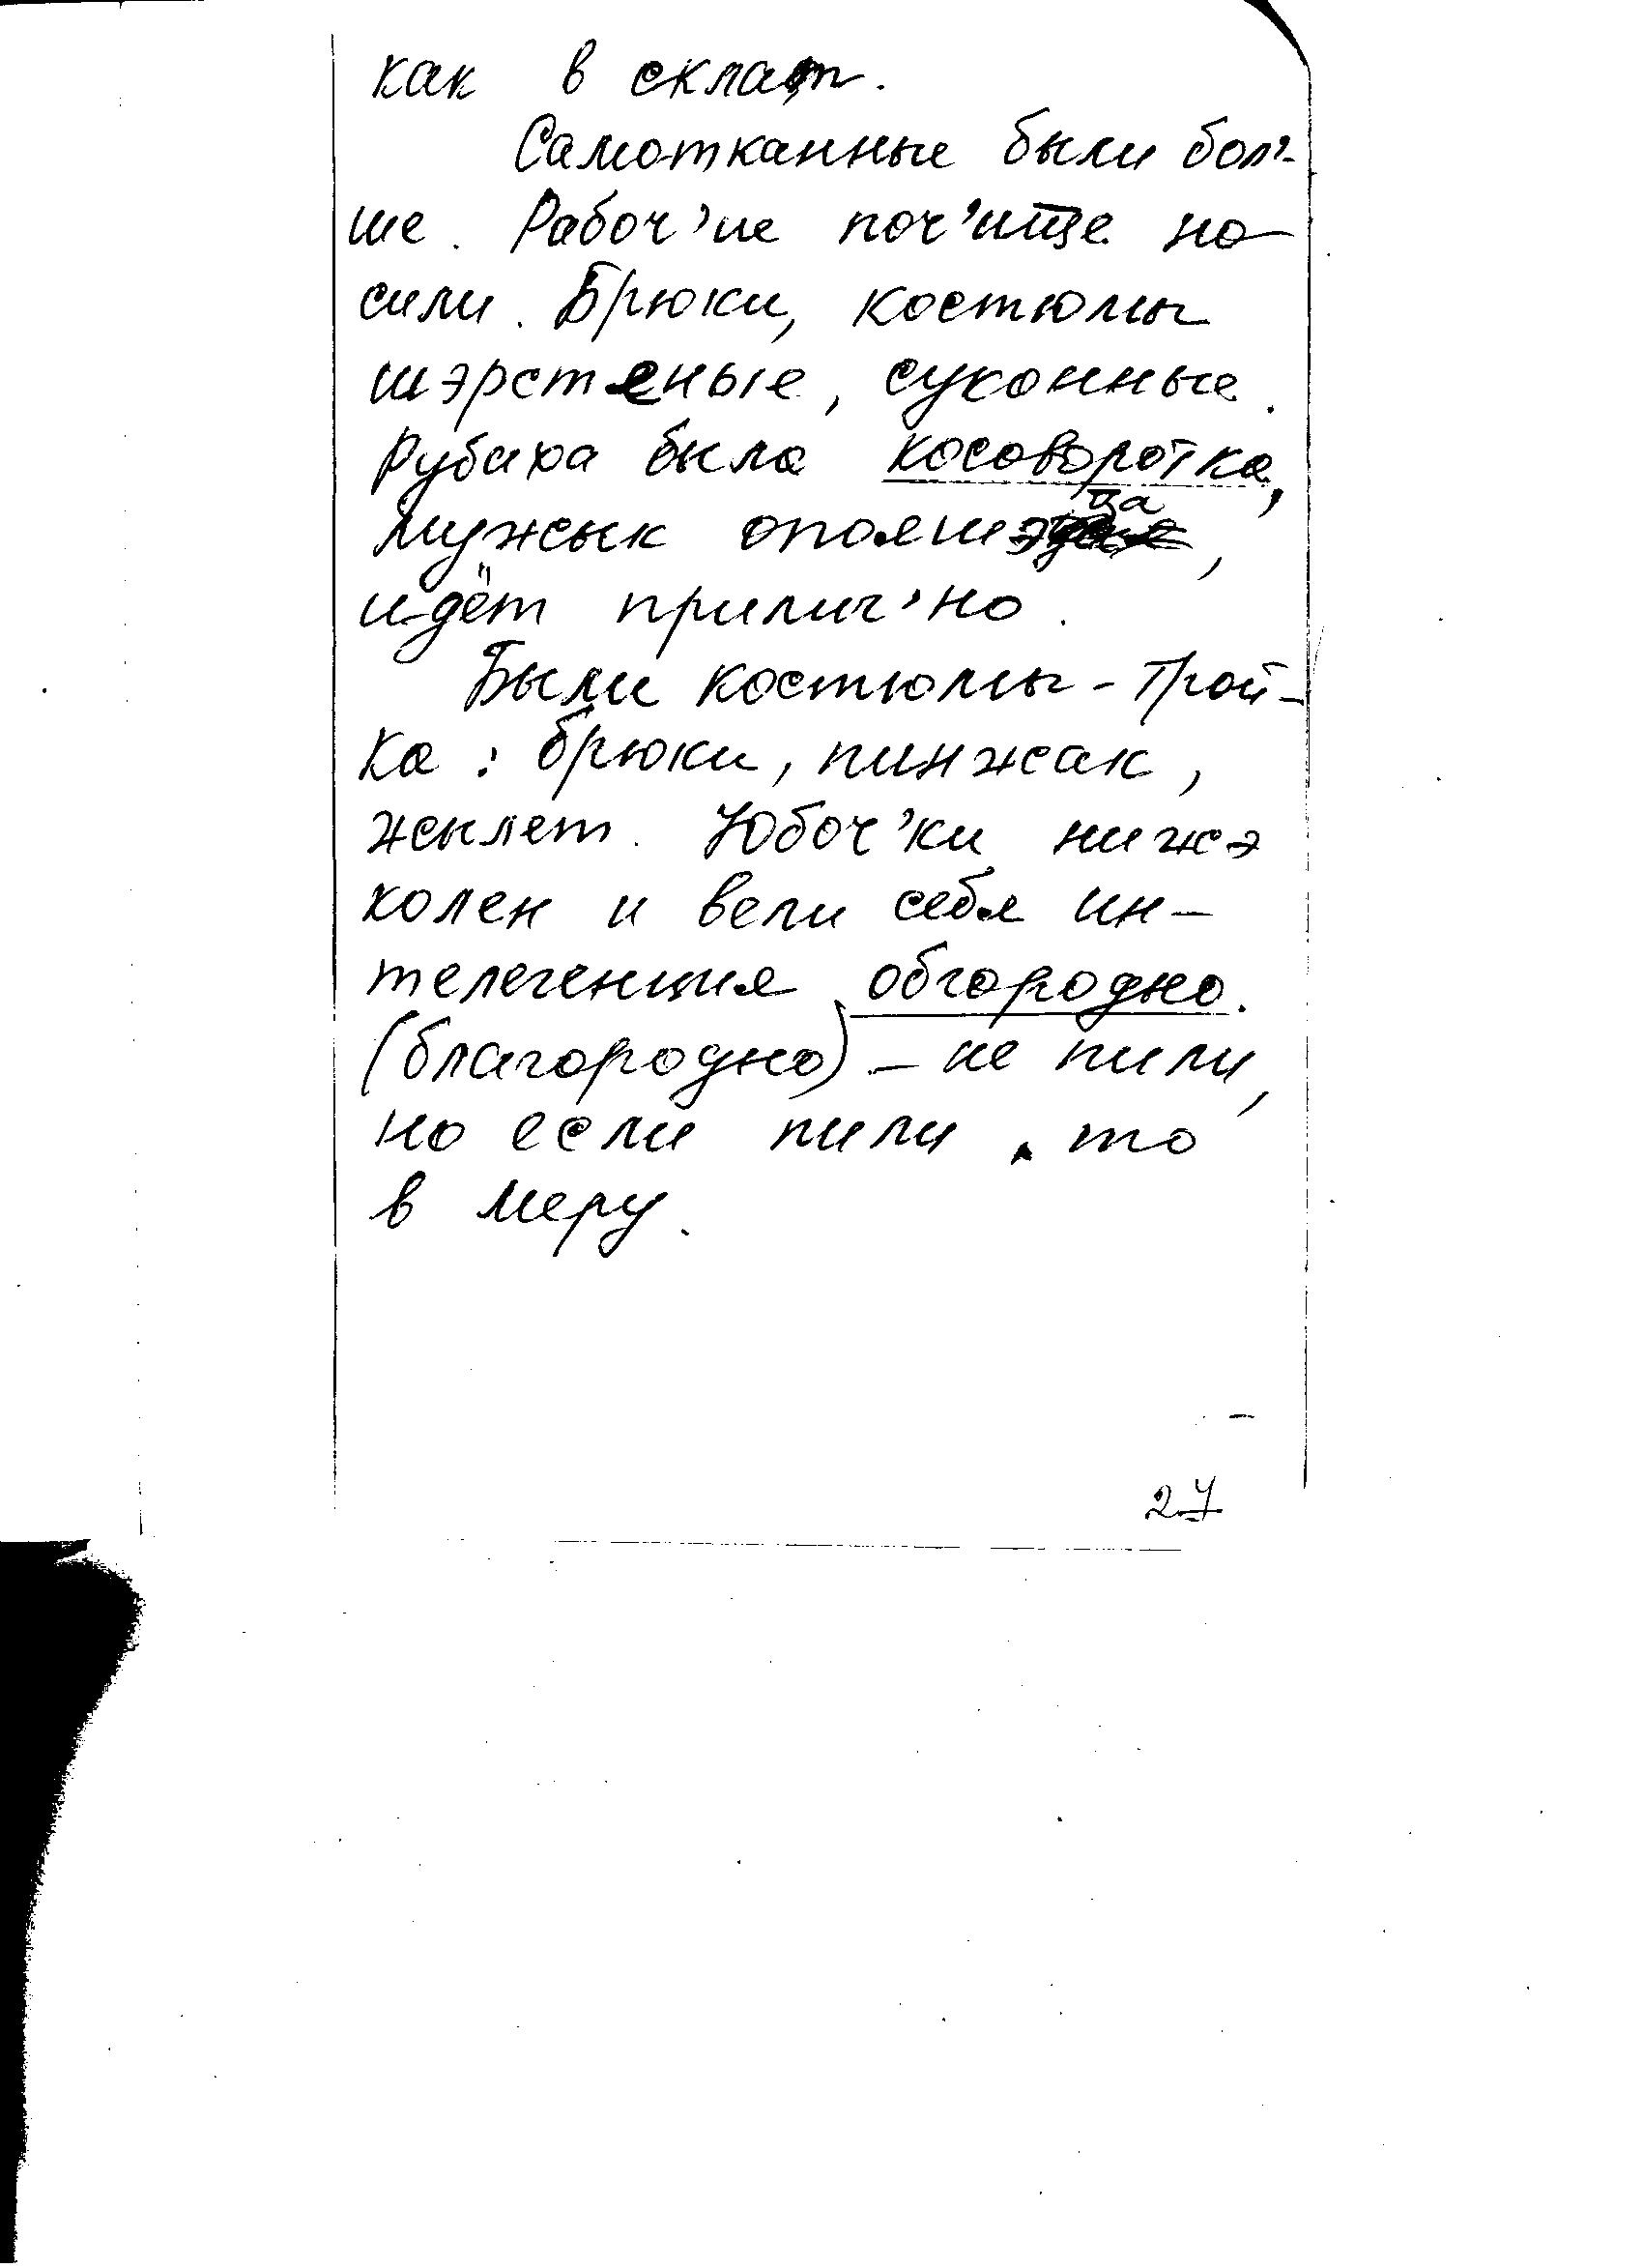 как в склат.
Самотканные были бол'-
ше. Рабоч'ие поч'ище но-
сили. Брюки, костюмы
шэрстеные, суконные.
Рубаха была косоворотка,
мужык опояшэца,
идёт прилич'но.
Были костюмы - трой-
ка: брюки, пинжак,
жылет. Юбоч'ки нижэ
колен и вели себя ин-
телегенция обгородно.
(благородно) - не пили,
но если пили, то
в меру.
27